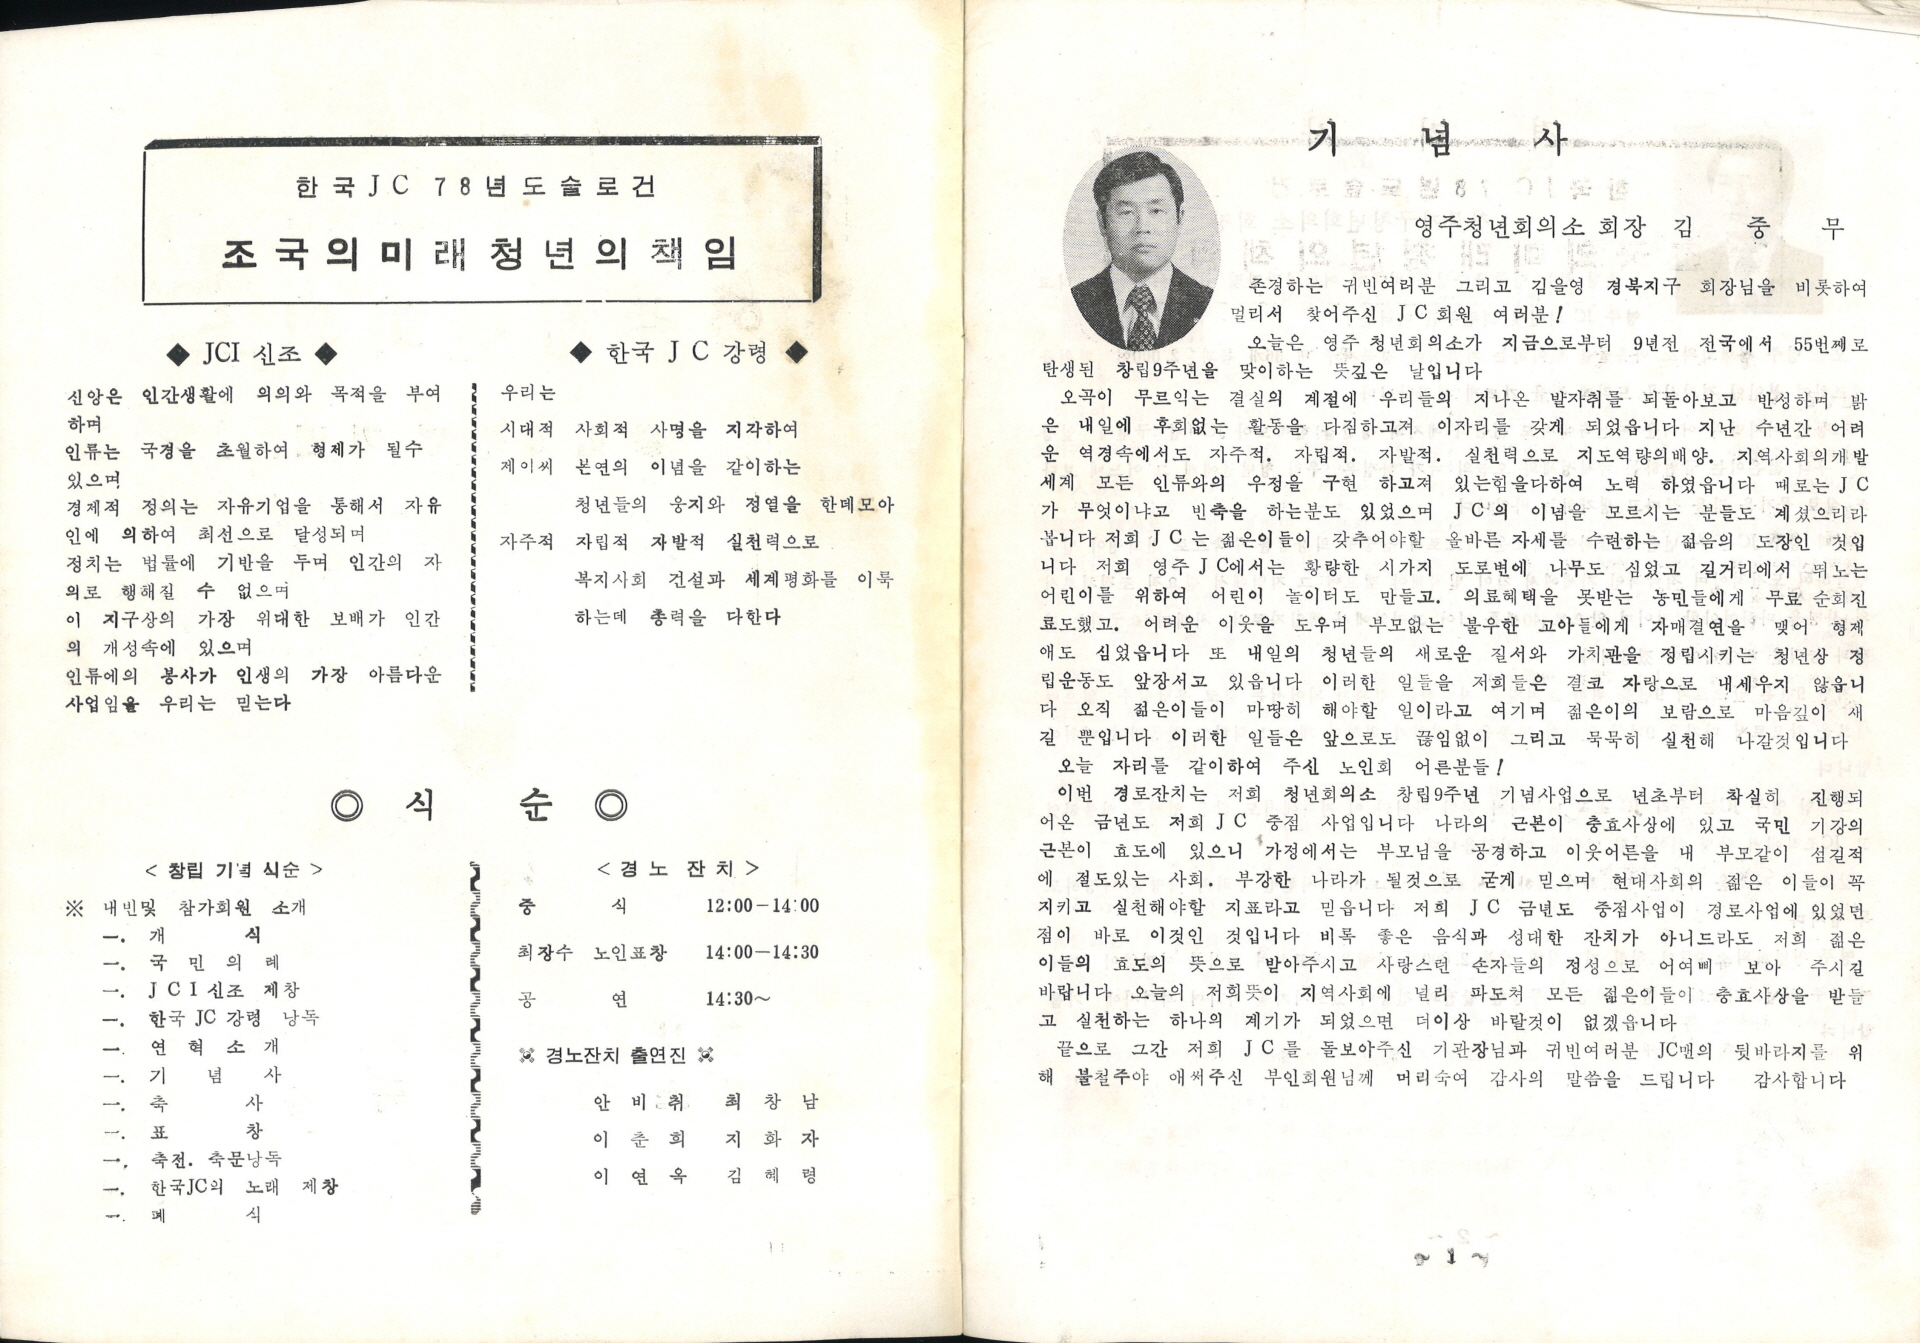 한국JC 78년도슬로건
조국의미래청년의책임
◆ JCI 신조 ◆
신앙은 인간생활에 의의와 목적을 부여
하며
인류는 국경을 초월하여 형제가 될수
있으며
경제적 정의는 자유기업을 통해서 자유
인에 의하여 최선으로 달성되며
정치는 법률에 기반을 두며 인간의 자
의로 행해질 수 없으며
이 지구상의 가장 위대한 보배가 인간
의 개성속에 있으며
인류에의 봉사가 인생의 가장 아름다운
사업임을 우리는 믿는다
◆ 한국 J C 강령 ◆
우리는
시대적 사회적 사명을 지각하여
제이씨 본연의 이념을 같이하는
청년들의 웅지와 정열을 한데모아
자주적 자립적 자발적 실천력으로
복지사회 건설과 세계평화를 이룩
하는데 총력을 다한다
◎ 식 순 ◎
< 창립 기념 식순 >
※ 내빈및 참가회원 소개
一. 개 식
一. 국 민 의 례
一. J C I 신조 제창
一. 한국 JC 강령 낭독
一. 연 혁 소 개
一. 기 념 사
一. 축 사
一. 표 창
一. 축전. 축문낭독
一. 한국JC의 노래 제창
一. 폐 식
< 경 노 잔 치 >
중 식 12:00－14:00
최장수 노인표창 14:00－14:30
공 연 14:30～
※ 경노잔치 출연진 ※
안 비 취 최 창 남
이 춘 희 지 화 자
이 연 옥 김 혜 령
기 념 사
영주청년회의소 회장 김 중 무
존경하는 귀빈여러분 그리고 김을영 경북지구 회장님을 비롯하여
멀리서 찾어주신 J C 회원 여러분!
오늘은 영주 청년회의소가 지금으로부터 9년전 전국에서 55번째로
탄생된 창립9주년을 맞이하는 뜻깊은 날입니다
오곡이 무르익는 결실의 계절에 우리들의 지나온 발자취를 되돌아보고 반성하며 밝
은 내일에 후회없는 활동을 다짐하고져 이자리를 갖게 되었읍니다 지난 수년간 어려
운 역경속에서도 자주적. 자립적. 자발적. 실천력으로 지도역량의배양. 지역사회의개발
세계 모든 인류와의 우정을 구현 하고져 있는힘을다하여 노력 하였읍니다 때로는 J C
가 무엇이냐고 빈축을 하는분도 있었으며 J C의 이념을 모르시는 분들도 계셨으리라
봅니다 저희 J C는 젊은이들이 갖추어야할 올바른 자세를 수련하는 젊음의 도장인 것입
니다 저희 영주 J C에서는 황량한 시가지 도로변에 나무도 심었고 길거리에서 뛰노는
어린이를 위하여 어린이 놀이터도 만들고. 의료혜택을 못받는 농민들에게 무료 순회진
료도했고. 어려운 이웃을 도우며 부모없는 불우한 고아들에게 자매결연을 맺어 형제
애도 심었읍니다 또 내일의 청년들의 새로운 질서와 가치관을 정립시키는 청년상 정
립운동도 앞장서고 있읍니다 이러한 일들을 저희들은 결코 자랑으로 내세우지 않읍니
다 오직 젊은이들이 마땅히 해야할 일이라고 여기며 젊은이의 보람으로 마음깊이 새
길 뿐입니다 이러한 일들은 앞으로도 끊임없이 그리고 묵묵히 실천해 나갈것입니다
오늘 자리를 같이하여 주신 노인회 어른분들!
이번 경로잔치는 저희 청년회의소 창립9주년 기념사업으로 년초부터 착실히 진행되
어온 금년도 저희 J C 중점 사업입니다 나라의 근본이 충효사상에 있고 국민 기강의
근본이 효도에 있으니 가정에서는 부모님을 공경하고 이웃어른을 내 부모같이 섬길적
에 절도있는 사회. 부강한 나라가 될것으로 굳게 믿으며 현대사회의 젊은 이들이 꼭
지키고 실천해야할 지표라고 믿읍니다 저희 J C 금년도 중점사업이 경로사업에 있었던
점이 바로 이것인 것입니다 비록 좋은 음식과 성대한 잔치가 아니드라도 저희 젊은
이들의 효도의 뜻으로 받아주시고 사랑스런 손자들의 정성으로 어여삐 보아 주시길
바랍니다 오늘의 저희뜻이 지역사회에 널리 파도쳐 모든 젊은이들이 충효사상을 받들
고 실천하는 하나의 계기가 되었으면 더이상 바랄것이 없겠읍니다
끝으로 그간 저희 J C를 돌보아주신 기관장님과 귀빈여러분 JC맨의 뒷바라지를 위
해 불철주야 애써주신 부인회원님께 머리숙여 감사의 말씀을 드립니다 감사합니다
～ 1 ～